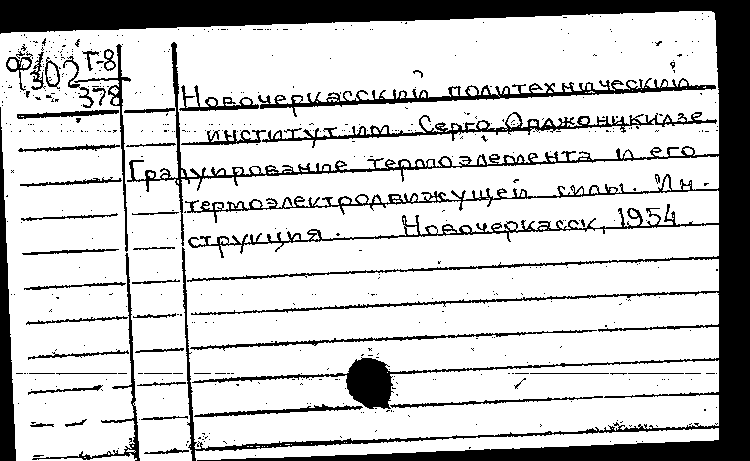 Т-8
302
378
Новочеркасский политехнический
институт им. Серго Орджоникидзе
Градуирование термоэлемента и его
термоэлектродвижущей силы. Ин-
струкция. Новочеркасск, 1954.